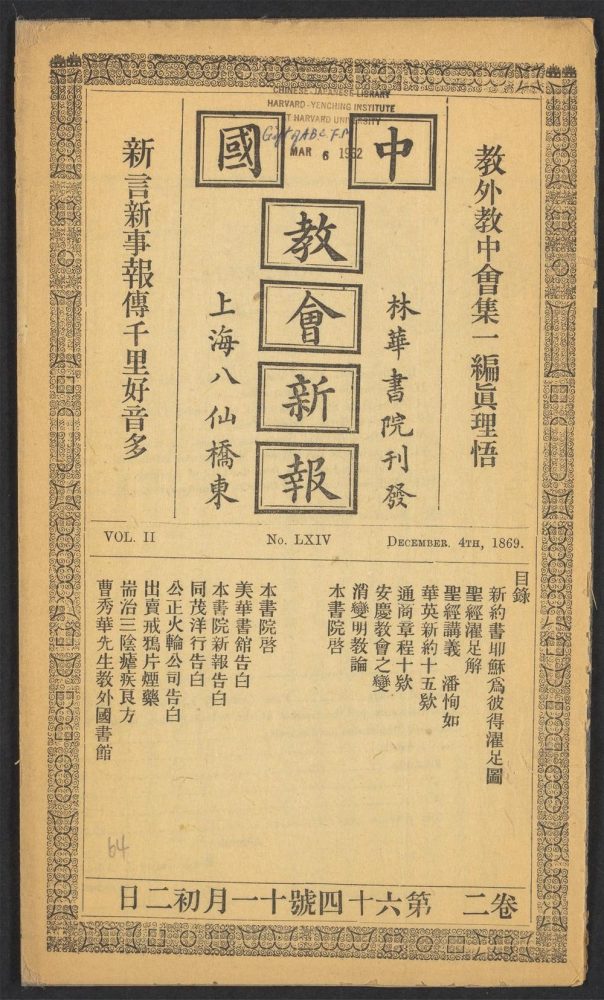 CHINESE-JAPANESE LIBRARY
HARVARD-YENCHING INSTITUTE
AT HARVARD UNIVERSITY
Gift of A.B.C.F.M
MAR 6 1962
中國
教會新報
教外教中會集一編眞理悟
林華書院刊發
上海八仙橋東
新言新事報傳千里好音多
VOL. II
No. LXIV
DECEMBER. 4TH, 1869.
目錄
新約書耶穌爲彼得濯足圖
聖經濯足解
聖經講義 潘恂如
華英新約十五欵
通商章程十欵
安慶教會之變
消變明教論
本書院啓
本書院啓
美華書館告白
本書院新報告白
同茂洋行告白
公正火輪公司告白
出賣戒鴉片煙藥
耑治三陰瘧疾良方
曹秀華先生教外國書館
64
卷二 第六十四號十一月初二日